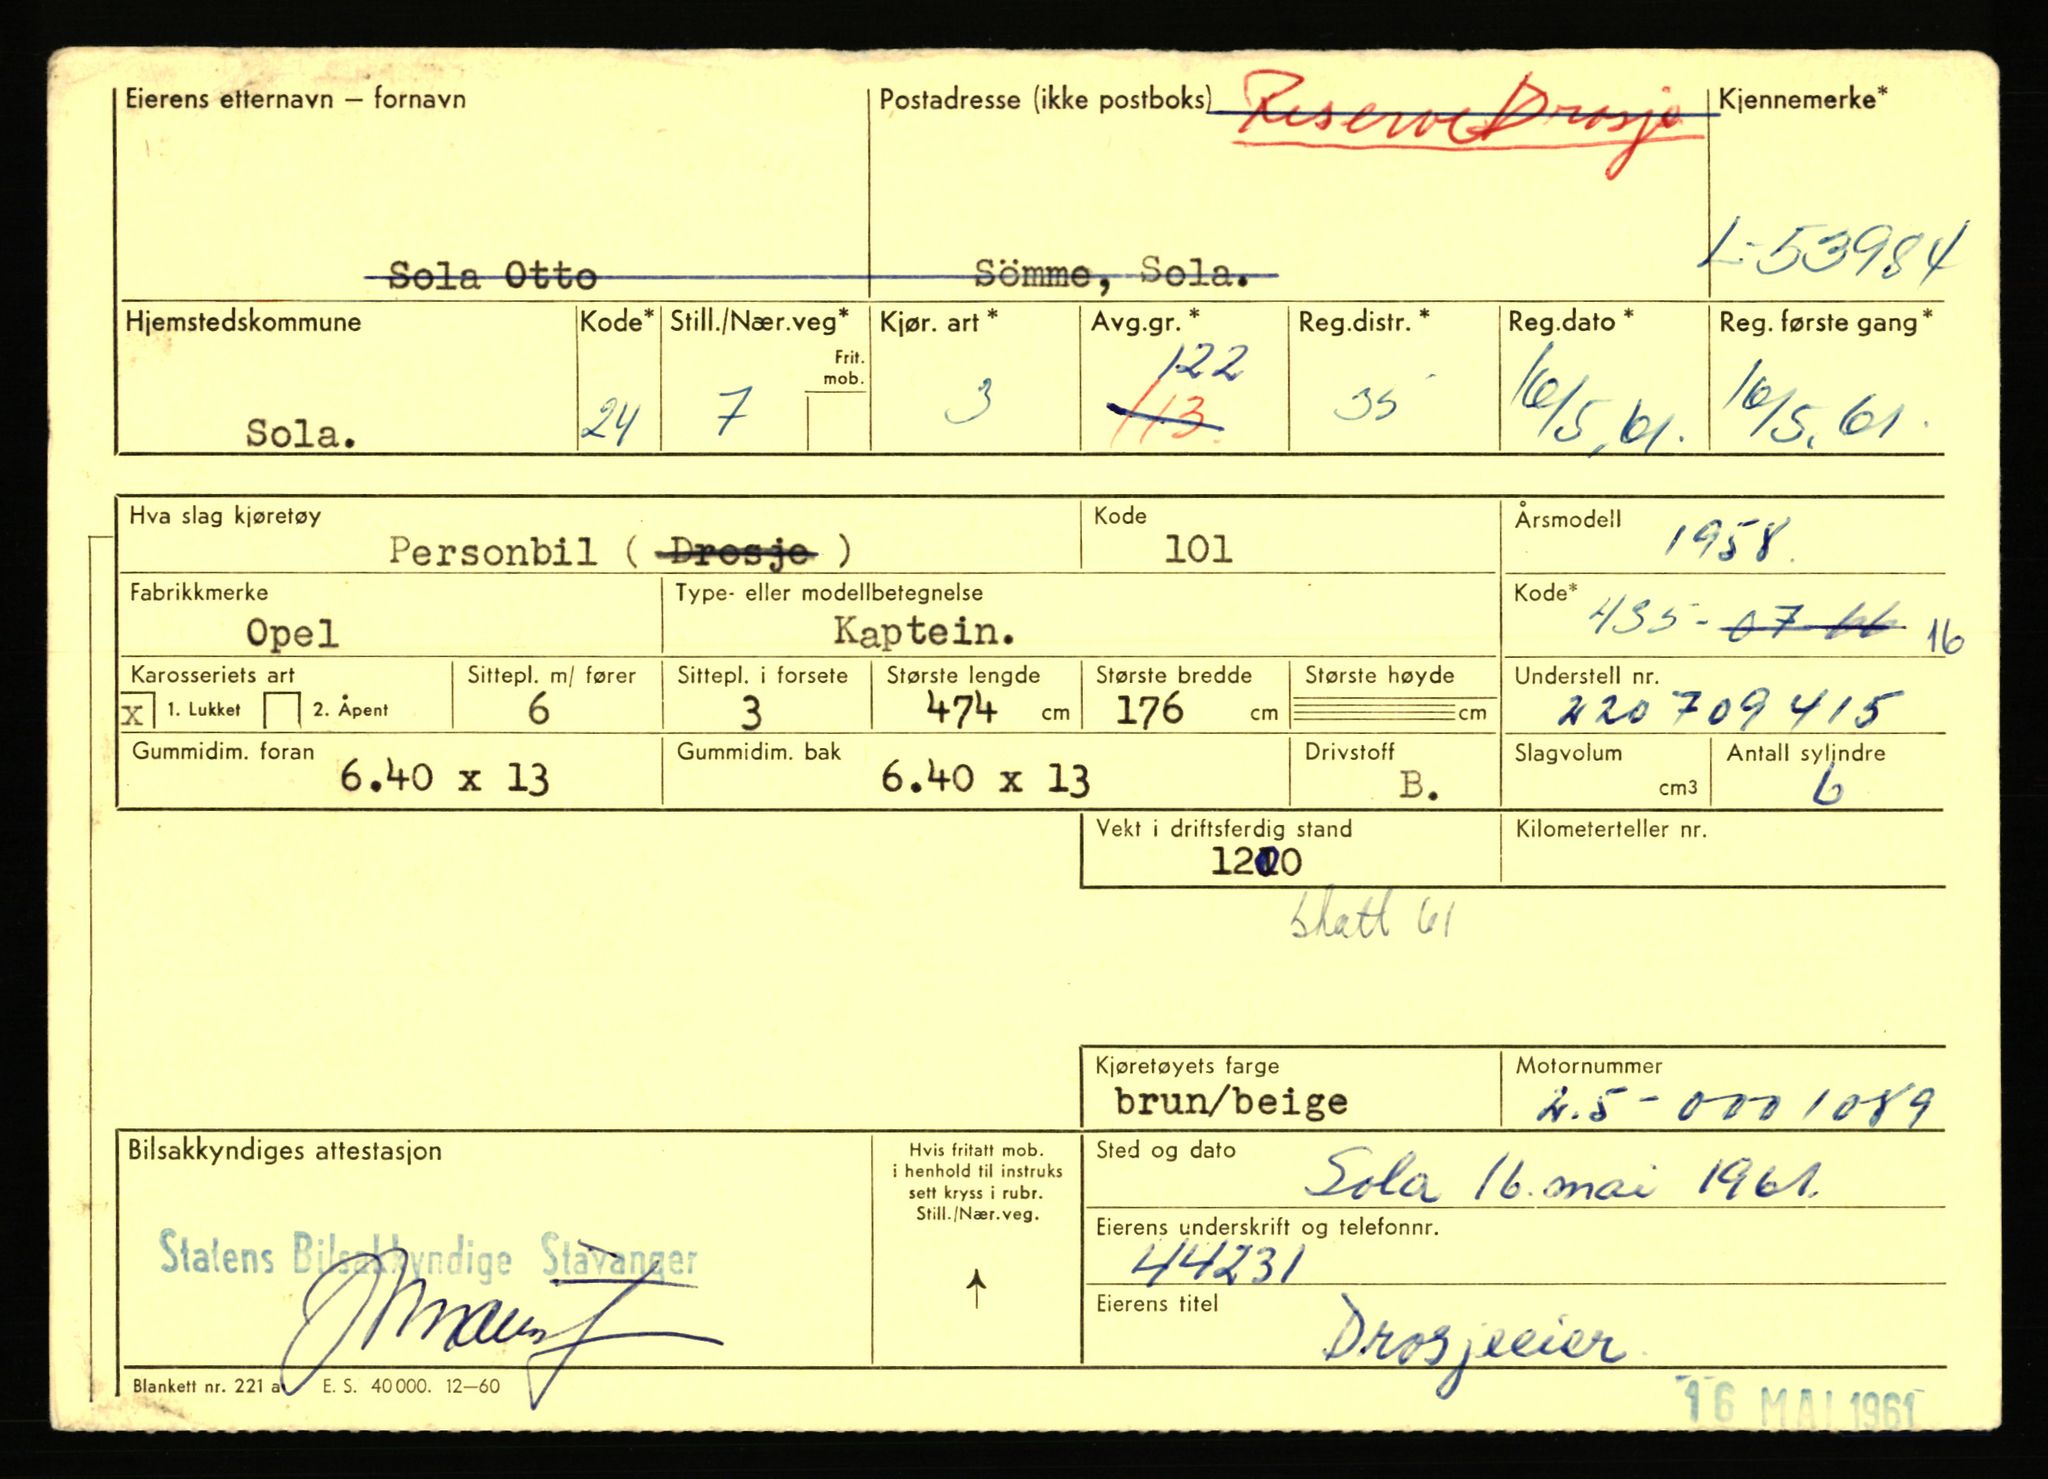 Eierens etternavn – fornavn
Postadresse (ikke postboks)
Reserve Drosje
Kjennemerke*
Sola Otto
Sömme, Sola.
L-53984
Hjemstedskommune
Kode*
Still./Nær.veg*
Kjør. art *
Avg.gr. *
Reg.distr. *
Reg.dato *
Reg. første gang *
Frit.
mob.
122
Sola.
24
7
3
113
35
16/5, 61.
16/5, 61.
Hva slag kjøretøy
Personbil ( Drosje )
Kode
101
Årsmodell
1958.
Fabrikkmerke
Opel
Type- eller modellbetegnelse
Kaptein.
Kode*
435- 07 66 16
Karosseriets art
x 1. Lukket 2. Åpent
Sittepl. m/ fører
6
Sittepl. i forsete
3
Største lengde
474 cm
Største bredde
176 cm
Største høyde
cm
Understell nr.
220709415
Gummidim. foran
6.40 x 13
Gummidim. bak
6.40 x 13
Drivstoff
B.
Slagvolum
cm3
Antall sylindre
6
Vekt i driftsferdig stand
1200
Kilometerteller nr.
skatt 61
Kjøretøyets farge
brun/beige
Motornummer
2.5-0001089
Bilsakkyndiges attestasjon
Hvis fritatt mob.
i henhold til instruks
sett kryss i rubr.
Still./Nær.veg.
↑
Sted og dato
Sola 16. mai 1961.
Eierens underskrift og telefonnr.
44231
Statens Bilsakkyndige Stavanger
Eierens titel
Drosjeeier
Blankett nr. 221 a. E. S. 40 000. 12–60
16 MAI 1961